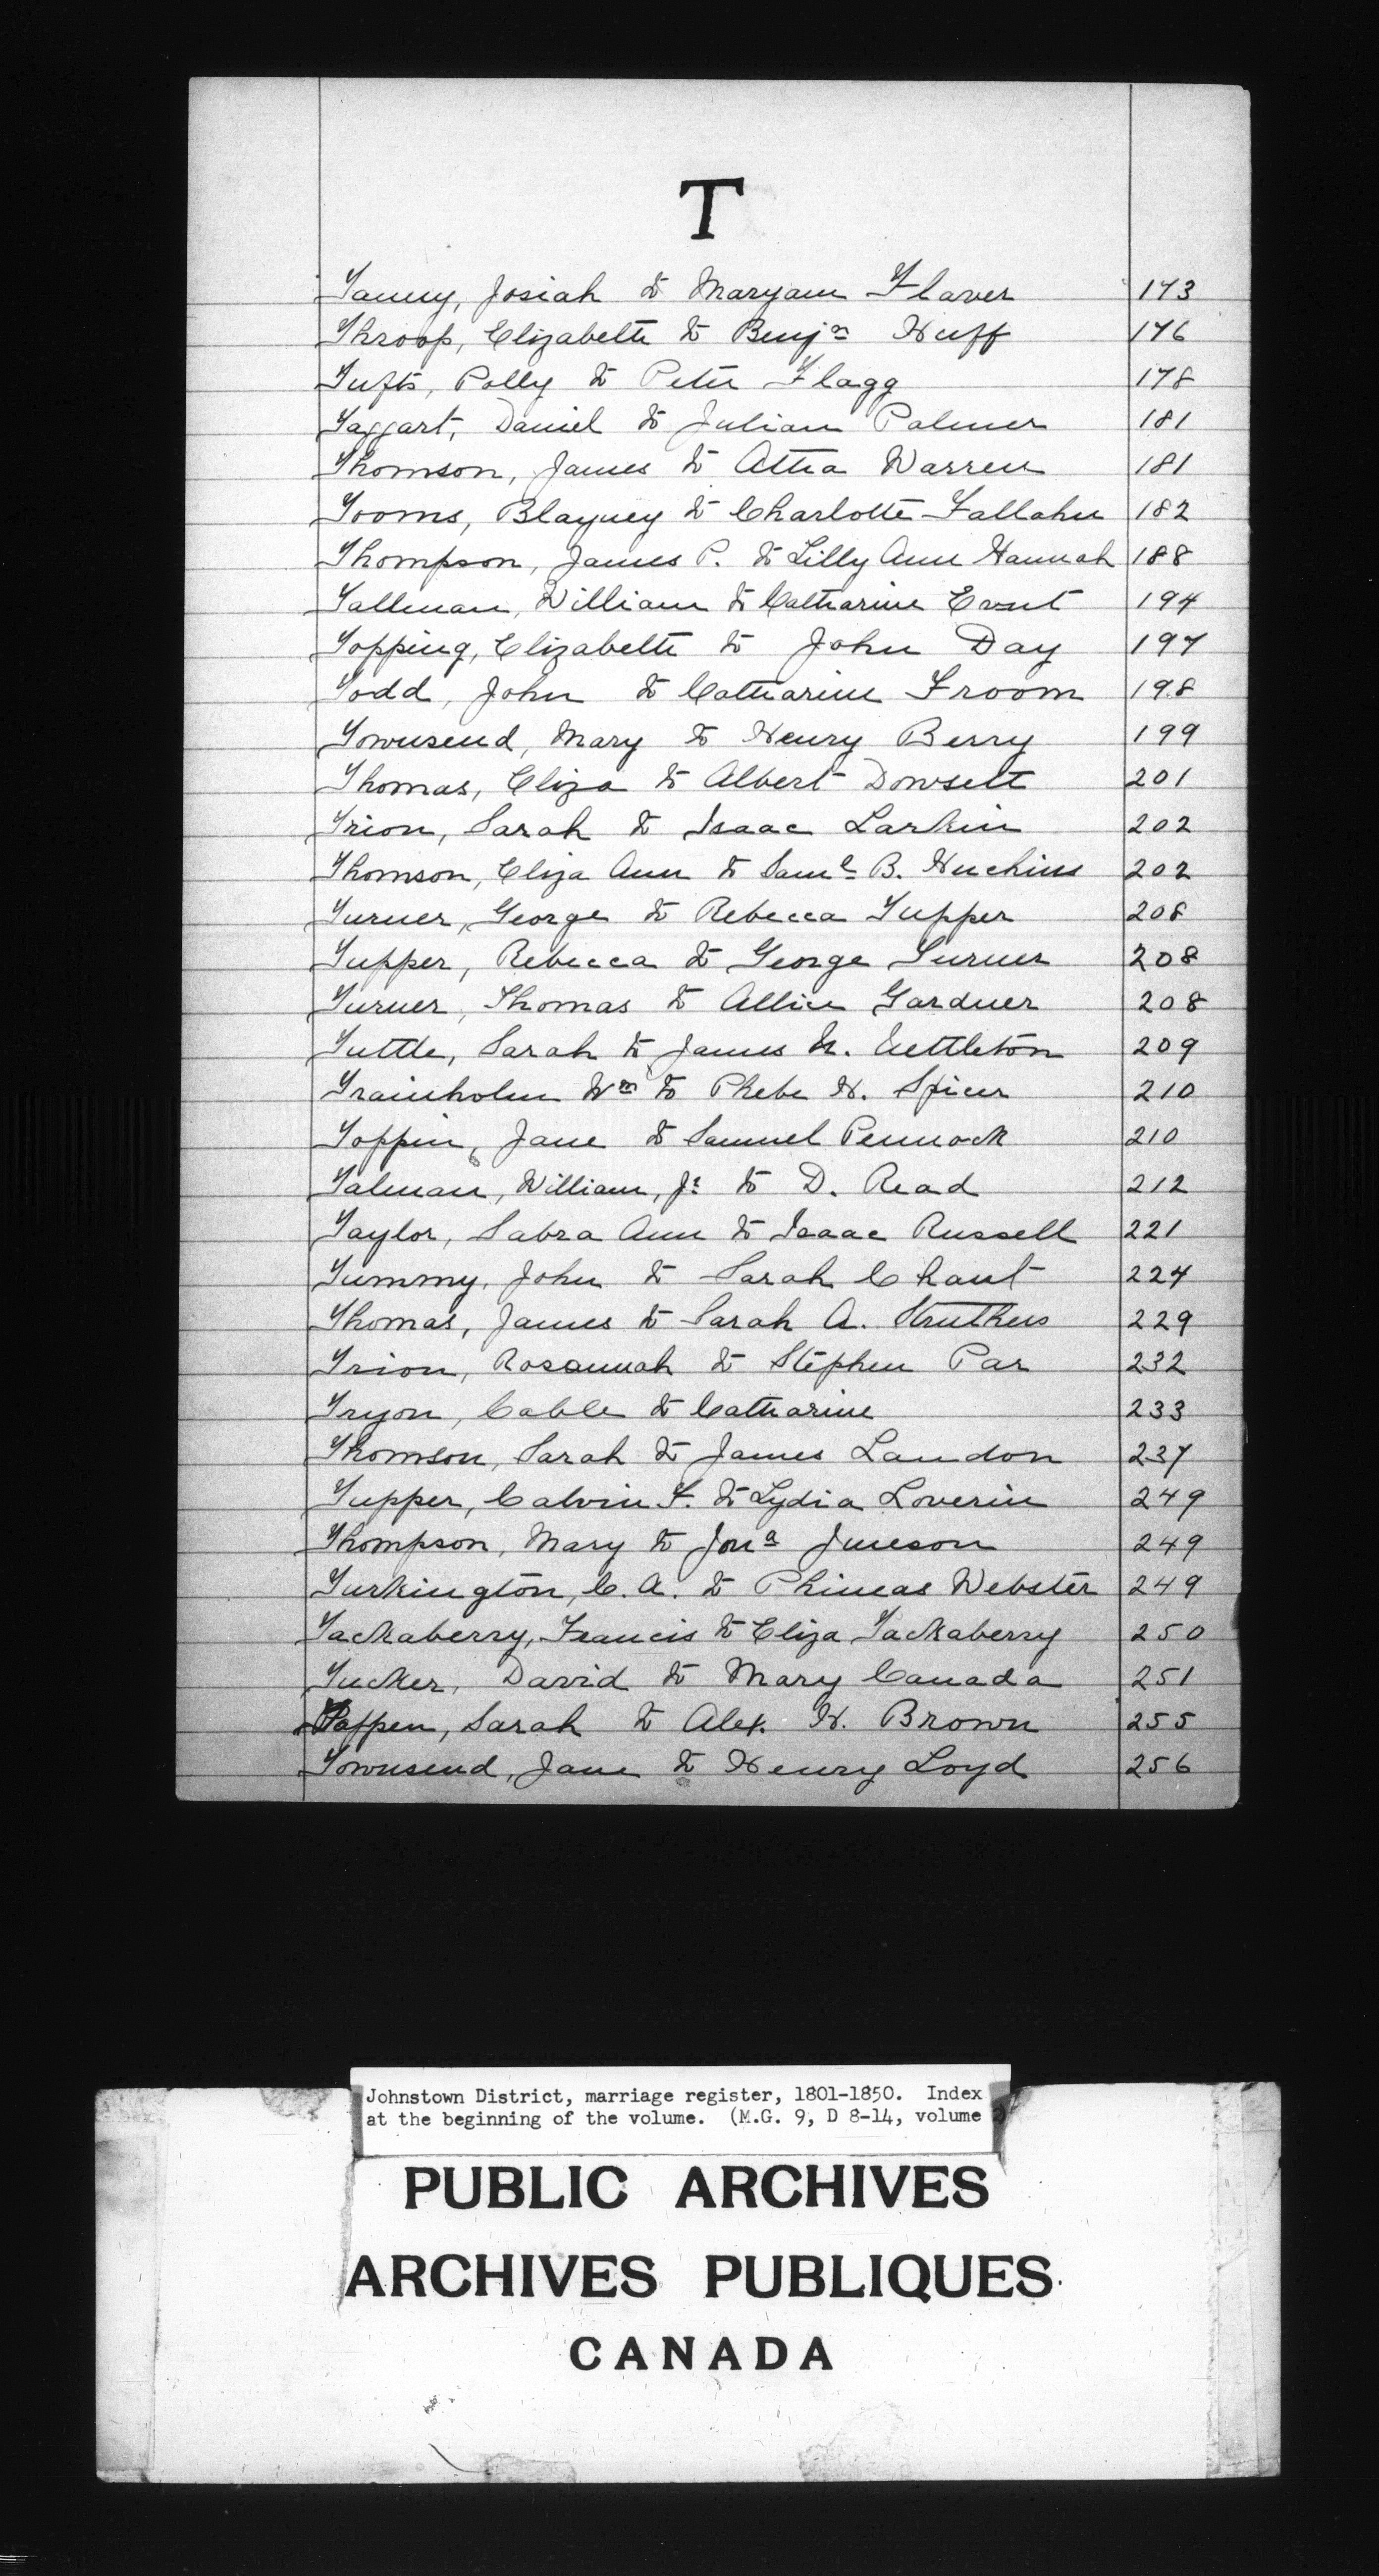 T
Tanny, Josiah to Maryann Flaver 173
Throop, Elizabeth to Benjn Huff 176
Tufts, Polly to Peter Flagg 178
Taggart, Daniel to Julian Palmer 181
Thomson, James to Attra Warren 181
Tooms, Blayney to Charlotte Fallahn 182
Thompson, James P. to Lilly Ann Hannah 188
Tallman, William to Catharine 194
Topping, Elizabeth to John Day 197
Todd, John to Catharine Froom 198
Townsend, Mary to Henry Berry 199
Thomas, Eliza to Albert Dowsett 201
Trion, Sarah to Isaac Larkin 202
Thomson, Eliza Ann to Saml B. Huchins 202
Turner, George to Rebecca Tupper 208
Tupper, Rebecca to George Turner 208
Turner, Thomas to Allice Gardner 208
Tuttle, Sarah to James N. Nettleton 209
Trainholm Wm to Phebe H. Spicer 210
Toppin, Jane to Samuel Pennock 210
Talman, William, Jr to D. Read 212
Taylor, Sabra Ann to Isaac Russell 221
Tummy, John to Sarah Chant 224
Thomas, James to Sarah A. Struthers 229
Trion, Rosannah to Stephen Par 232
Tryon, Cable to Catharine 233
Thomson, Sarah to James Landon 237
Tupper, Calvin F. to Lydia Loverin 249
Thompson, Mary to Jona Jmeson 249
Turkington, C. A. to Phineas Webster 249
Tackaberry, Francis to Eliza Tackaberry 250
Tucker, David to Mary Canada 251
Tappen, Sarah to Alex. H. Brown 255
Townsend, Jane to Henry Loyd 256
Johnstown District, marriage register, 1801-1850. Index
at the beginning of the volume. (M.G. 9, D 8-14, volume
PUBLIC ARCHIVES
ARCHIVES PUBLIQUES
CANADA